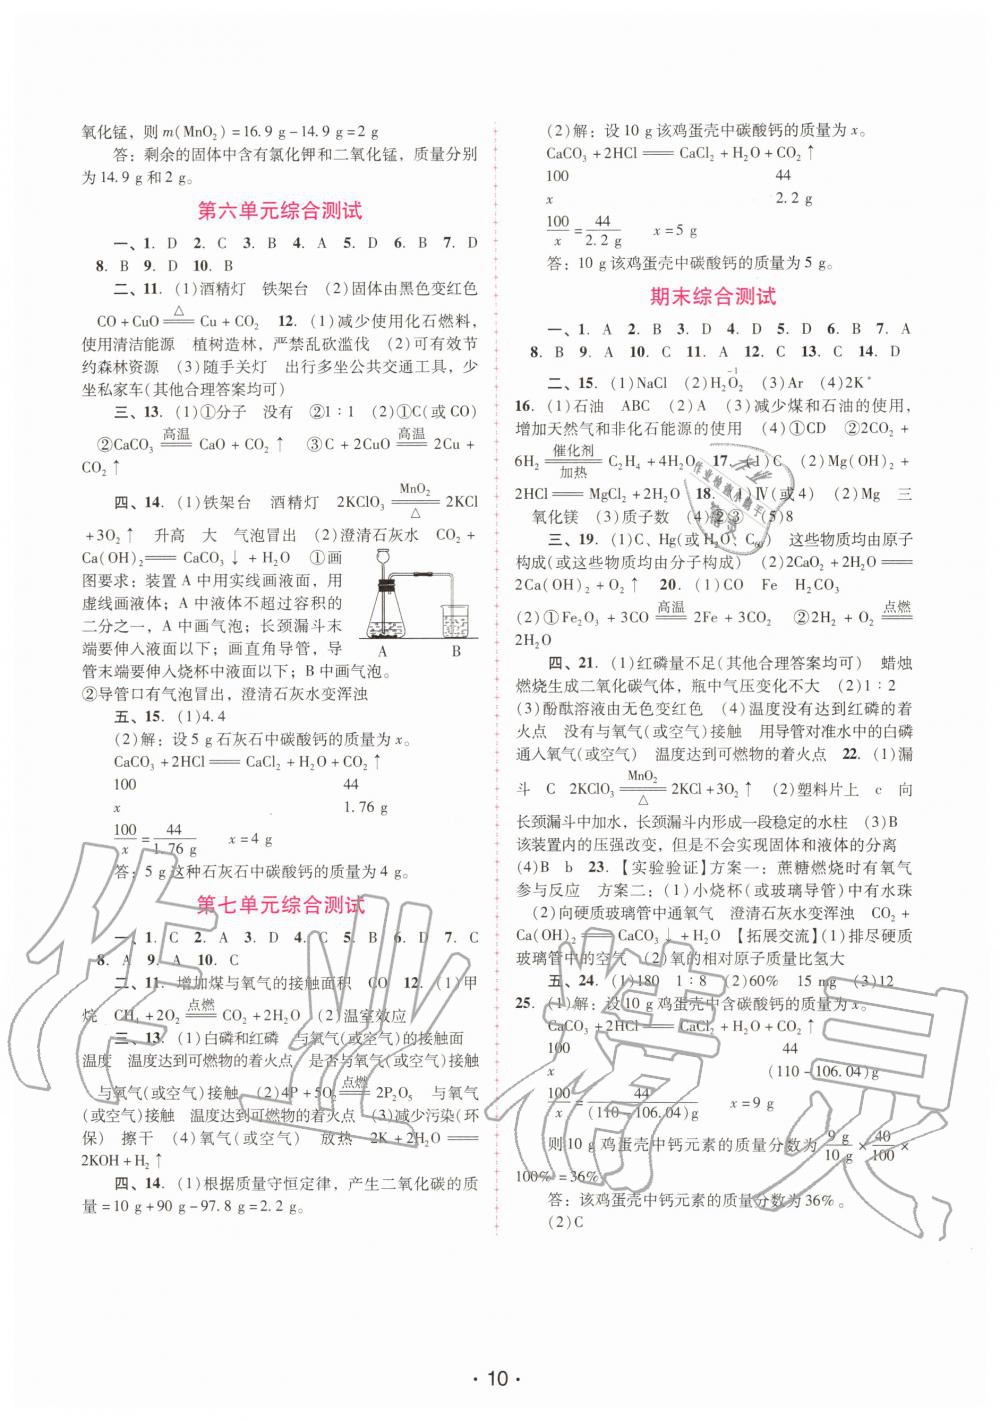 氧化锰，则 m(MnO₂)=16.9 g-14.9 g=2 g
答：剩余的固体中含有氯化钾和二氧化锰，质量分别
为 14.9 g 和 2 g。
第六单元综合测试
一、1. D 2. C 3. B 4. A 5. D 6. B 7. D
8. B 9. D 10. B
二、11. (1)酒精灯 铁架台 (2)固体由黑色变红色
CO+CuO=△=Cu+CO₂ 12. (1)减少使用化石燃料，
使用清洁能源 植树造林，严禁乱砍滥伐 (2)可有效节
约森林资源 (3)随手关灯 出行多坐公共交通工具，少
坐私家车(其他合理答案均可)
三、13. (1)①分子 没有 ②1∶1 (2)①C(或 CO)
②CaCO₃=高温=CaO+CO₂↑ ③C+2CuO=高温=2Cu+
CO₂↑
四、14. (1)铁架台 酒精灯 2KClO₃=MnO₂/△=2KCl
+3O₂↑ 升高 大 气泡冒出 (2)澄清石灰水 CO₂+
Ca(OH)₂══CaCO₃↓+H₂O ①画
图要求：装置 A 中用实线画液面，用
虚线画液体；A 中液体不超过容积的
二分之一，A 中画气泡；长颈漏斗末
端要伸入液面以下；画直角导管，导
管末端要伸入烧杯中液面以下；B 中画气泡。
A B
②导管口有气泡冒出，澄清石灰水变浑浊
五、15. (1)4.4
(2)解：设 5 g 石灰石中碳酸钙的质量为 x。
CaCO₃+2HCl══CaCl₂+H₂O+CO₂↑
100 44
x 1.76 g
100/x=44/1.76 g x=4 g
答：5 g 这种石灰石中碳酸钙的质量为 4 g。
第七单元综合测试
一、1. C 2. A 3. D 4. C 5. B 6. D 7. C
8. A 9. A 10. C
二、11. 增加煤与氧气的接触面积 CO 12. (1)甲
烷 CH₄+2O₂=点燃=CO₂+2H₂O (2)温室效应
三、13. (1)白磷和红磷 与氧气(或空气)的接触面
温度 温度达到可燃物的着火点 是否与氧气(或空气)接触
与氧气(或空气)接触 (2)4P+5O₂=点燃=2P₂O₅ 与氧气
(或空气)接触 温度达到可燃物的着火点 (3)减少污染(环
保) 擦干 (4)氧气(或空气) 放热 2K+2H₂O══
2KOH+H₂↑
四、14. (1)根据质量守恒定律，产生二氧化碳的质
量=10 g+90 g-97.8 g=2.2 g。
(2)解：设 10 g 该鸡蛋壳中碳酸钙的质量为 x。
CaCO₃+2HCl══CaCl₂+H₂O+CO₂↑
100 44
x 2.2 g
100/x=44/2.2 g x=5 g
答：10 g 该鸡蛋壳中碳酸钙的质量为 5 g。
期末综合测试
一、1. A 2. B 3. D 4. D 5. B 6. B 7. A
8. B 9. A 10. C 11. A 12. C 13. C 14. D
二、15. (1)NaCl (2)H₂O₂(-1) (3)Ar (4)2K⁺
16. (1)石油 ABC (2)A (3)减少煤和石油的使用，
增加天然气和非化石能源的使用 (4)①CD ②2CO₂+
6H₂=催化剂/加热=C₂H₄+4H₂O 17. (1)C (2)Mg(OH)₂+
2HCl══MgCl₂+2H₂O 18. (1)Ⅳ(或 4) (2)Mg 三
氧化镁 (3)质子数 (4)②③ (5)8
三、19. (1)C、Hg(或 H₂O、C₆₀) 这些物质均由原子
构成(或这些物质均由分子构成) (2)2CaO₂+2H₂O══
2Ca(OH)₂+O₂↑ 20. (1)CO Fe H₂CO₃
(2)①Fe₂O₃+3CO=高温=2Fe+3CO₂ ②2H₂+O₂=点燃=
2H₂O
四、21. (1)红磷量不足(其他合理答案均可) 蜡烛
燃烧生成二氧化碳气体，瓶中气压变化不大 (2)1∶2
(3)酚酞溶液由无色变红色 (4)温度没有达到红磷的着
火点 没有与氧气(或空气)接触 用导管对准水中的白磷
通入氧气(或空气) 温度达到可燃物的着火点 22. (1)漏
斗 C 2KClO₃=MnO₂/△=2KCl+3O₂↑ (2)塑料片上 c 向
长颈漏斗中加水，长颈漏斗内形成一段稳定的水柱 (3)B
该装置内的压强改变，但是不会实现固体和液体的分离
(4)B b 23.【实验验证】方案一：蔗糖燃烧时有氧气
参与反应 方案二：(1)小烧杯(或玻璃导管)中有水珠
(2)向硬质玻璃管中通氧气 澄清石灰水变浑浊 CO₂+
Ca(OH)₂══CaCO₃↓+H₂O 【拓展交流】(1)排尽硬质
玻璃管中的空气 (2)氧的相对原子质量比氢大
五、24. (1)180 1∶8 (2)60% 15 mg (3)12
25. (1)解：设 10 g 鸡蛋壳中含碳酸钙的质量为 x。
CaCO₃+2HCl══CaCl₂+H₂O+CO₂↑
100 44
x (110-106.04)g
100/x=44/(110-106.04)g x=9 g
则 10 g 鸡蛋壳中钙元素的质量分数为 9 g/10 g×40/100×
100%=36%
答：该鸡蛋壳中钙元素的质量分数为 36%。
(2)C
作业精灵
· 10 ·